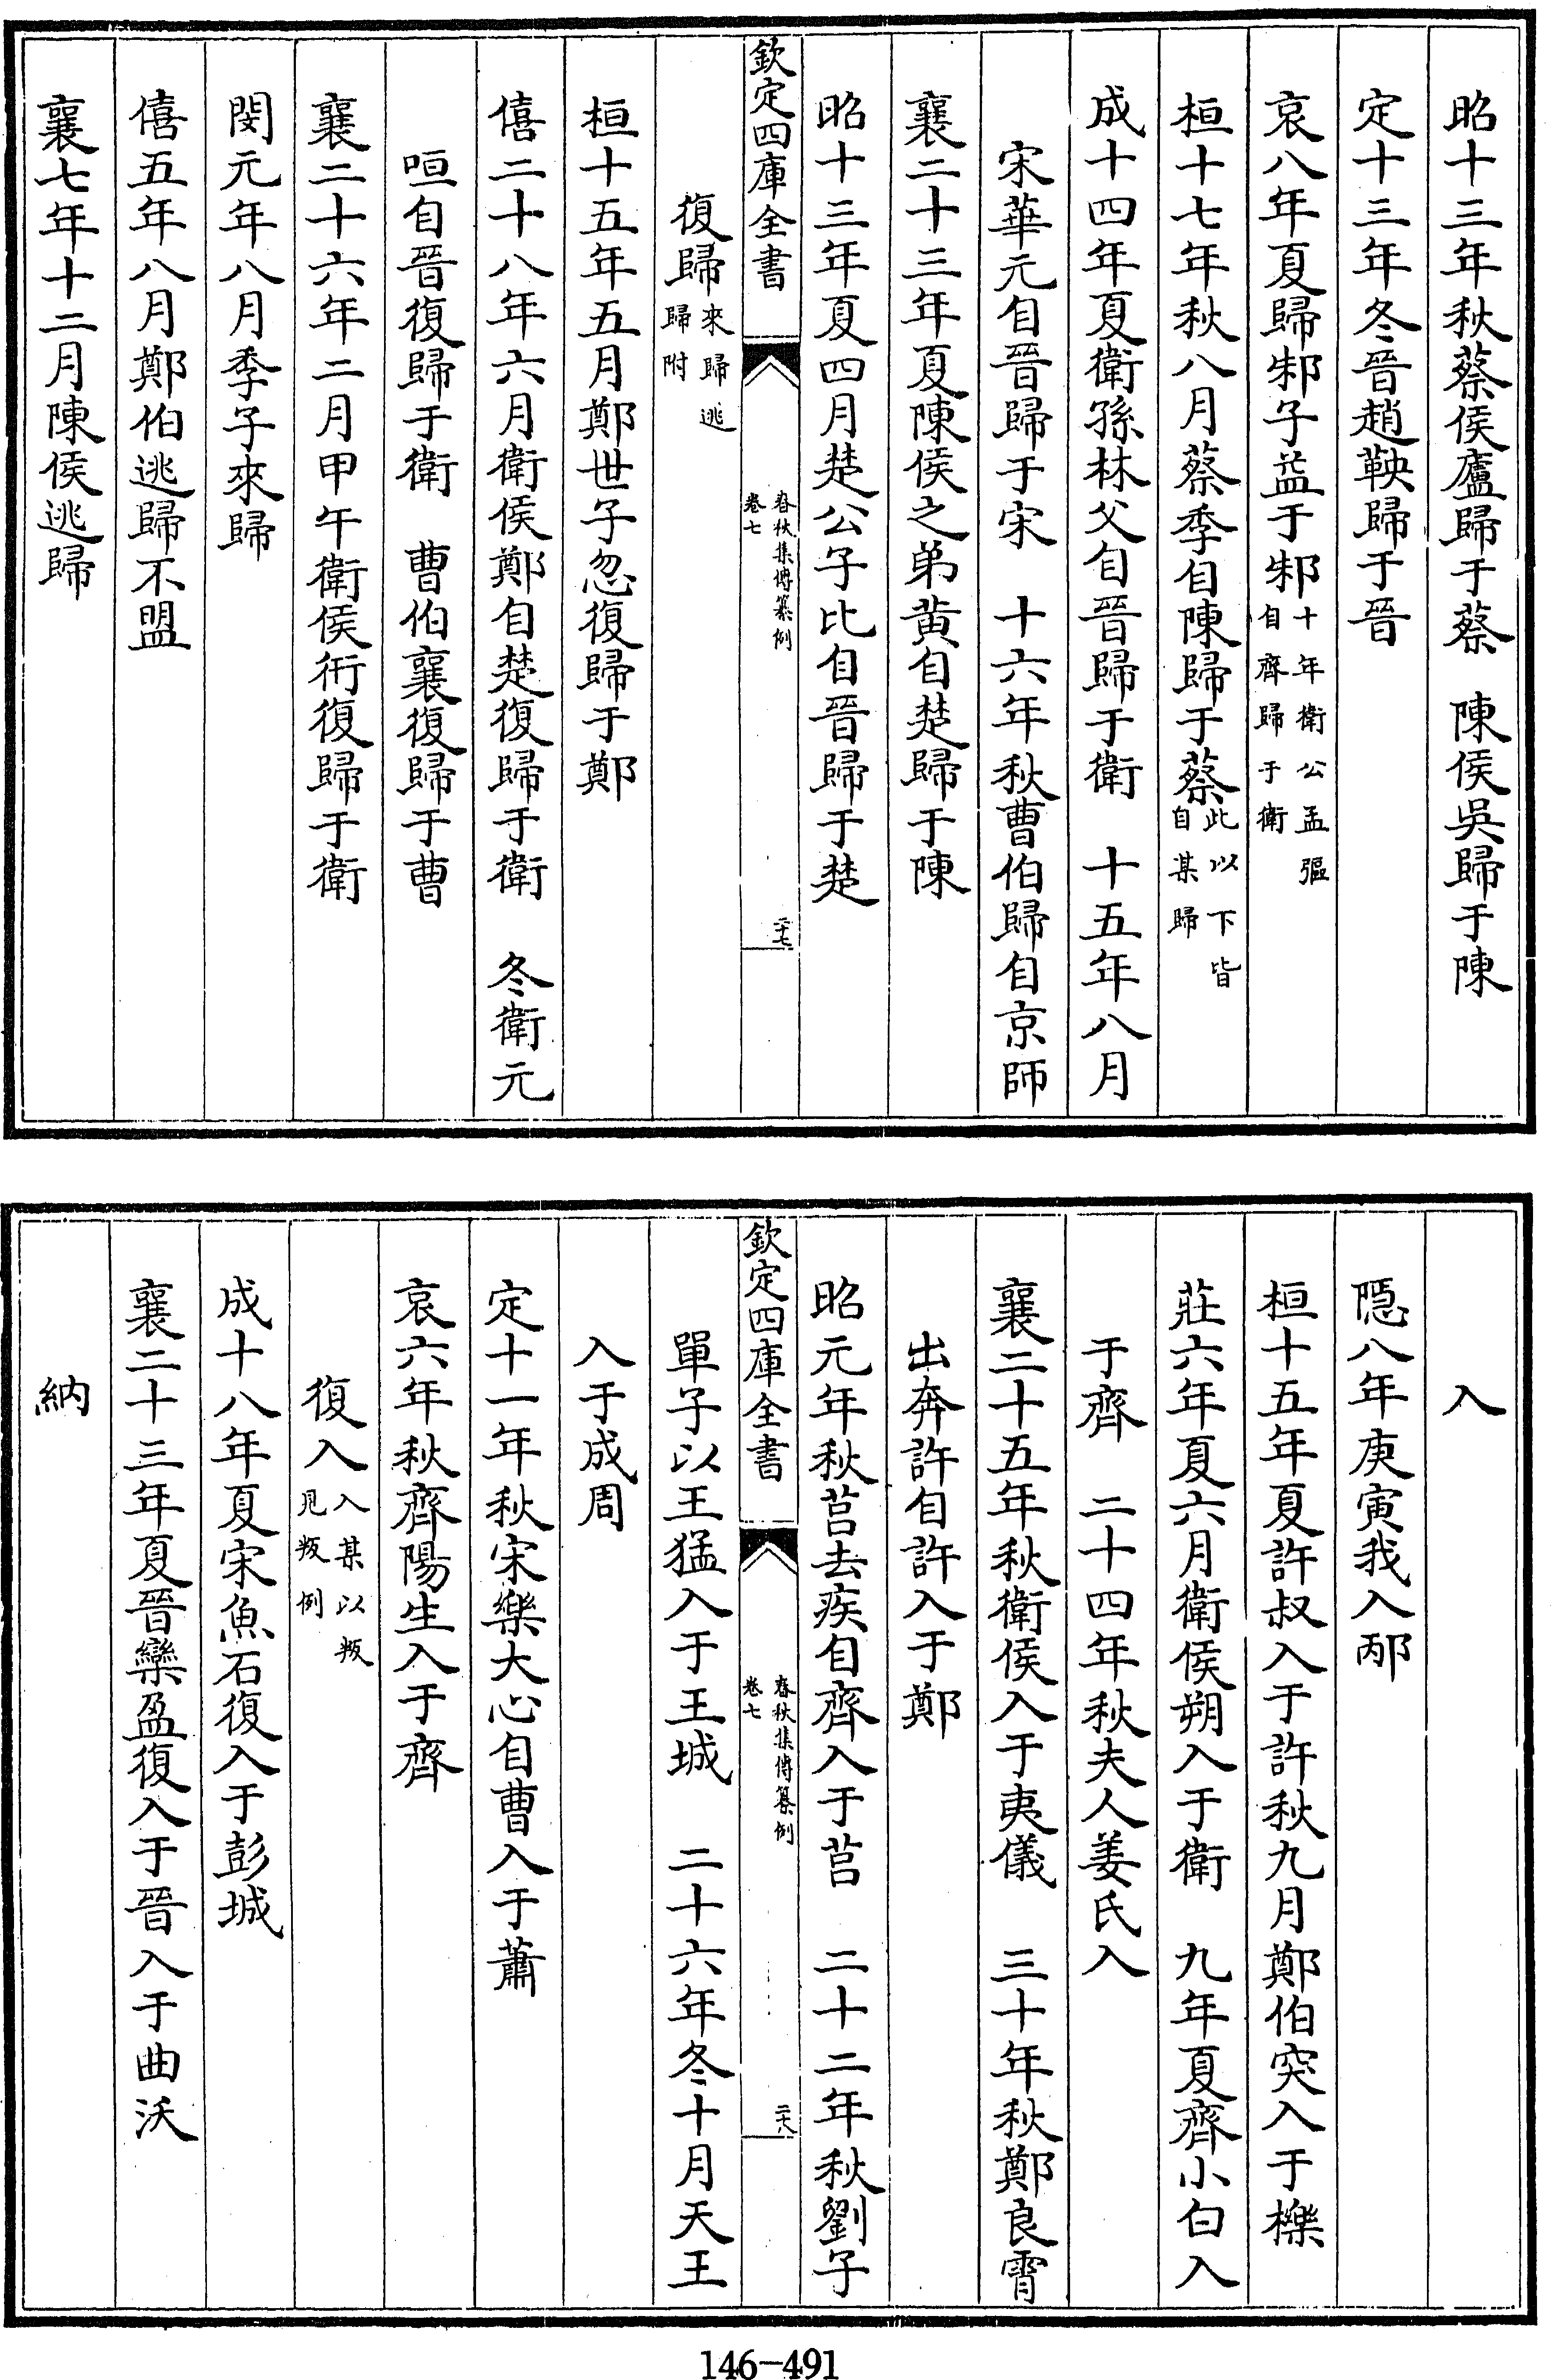 昭十三年秋蔡侯廬歸于蔡　陳侯吳歸于陳
定十三年冬晉趙鞅歸于晉
哀八年夏歸邾子益于邾十年衛公孟彄自齊歸于衛
桓十七年秋八月蔡季自陳歸于蔡此以下皆自某歸
成十四年夏衛孫林父自晉歸于衛　十五年八月
宋華元自晉歸于宋　十六年秋曹伯歸自京師
襄二十三年夏陳侯之弟黄自楚歸于陳
昭十三年夏四月楚公子比自晉歸于楚
欽定四庫全書
春秋集傳纂例
卷七
二十七
復歸來歸逃歸附
桓十五年五月鄭世子忽復歸于鄭
僖二十八年六月衛侯鄭自楚復歸于衛　冬衛元
咺自晉復歸于衛　曹伯襄復歸于曹
襄二十六年二月甲午衛侯衎復歸于衛
閔元年八月季子來歸
僖五年八月鄭伯逃歸不盟
襄七年十二月陳侯逃歸
入
隠八年庚寅我入邴
桓十五年夏許叔入于許秋九月鄭伯突入于櫟
莊六年夏六月衛侯朔入于衛　九年夏齊小白入
于齊　二十四年秋夫人姜氏入
襄二十五年秋衛侯入于夷儀　三十年秋鄭良霄
出奔許自許入于鄭
昭元年秋莒去疾自齊入于莒　二十二年秋劉子
欽定四庫全書
春秋集傳纂例
卷七
二十八
單子以王猛入于王城　二十六年冬十月天王
入于成周
定十一年秋宋樂大心自曹入于蕭
哀六年秋齊陽生入于齊
復入入某以叛見叛例
成十八年夏宋魚石復入于彭城
襄二十三年夏晉欒盈復入于晉入于曲沃
納
146-491